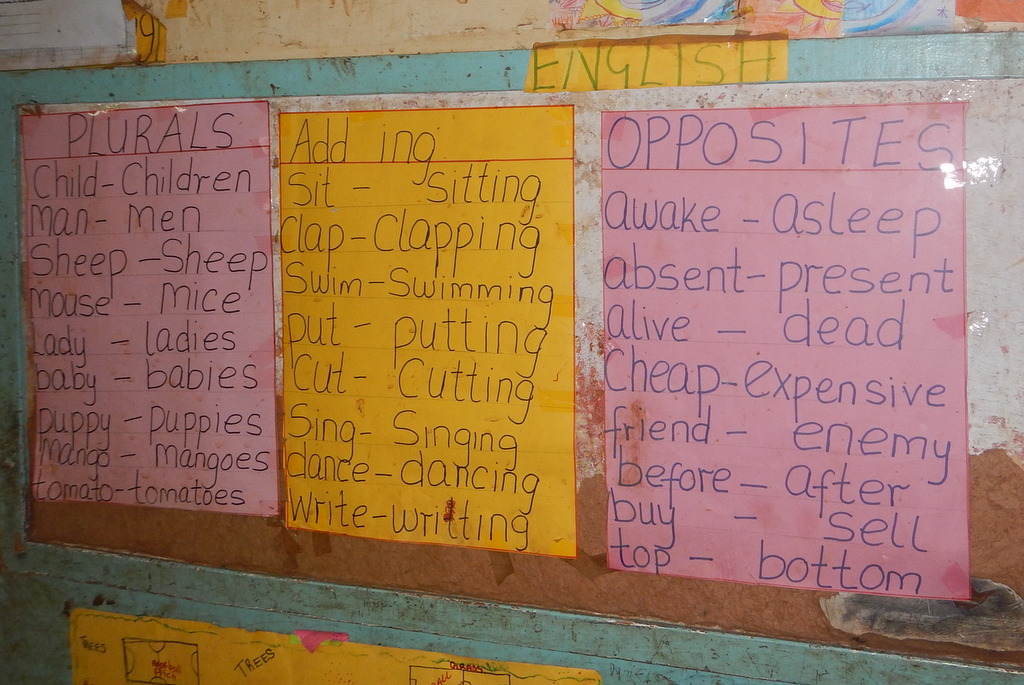 9)
ENGLISH
PLURALS
Child-Children
man-men
Sheep-Sheep
mouse-mice
Lady-ladies
baby-babies
puppy-puppies
Mango-mangoes
tomato-tomatoes
Add ing
Sit-Sitting
Clap-Clapping
Swim-Swimming
put-putting
Cut-Cutting
Sing-Singing
dance-dancing
Write-writting
OPPOSITES
awake-asleep
absent-present
alive-dead
Cheap-expensive
friend-enemy
before-after
buy-sell
top-bottom
TREES
TREES
GRASS